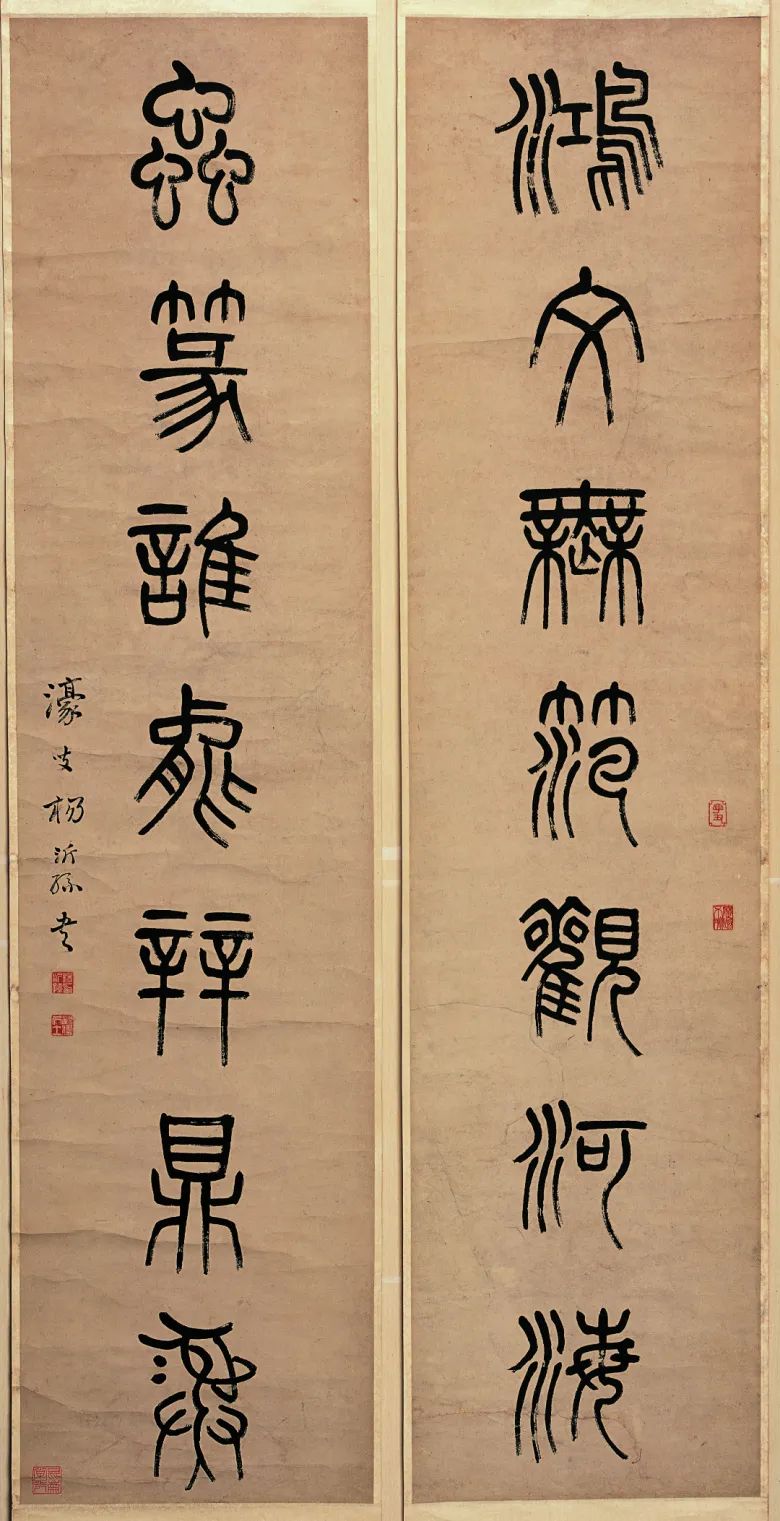 鴻文無笵觀河海
蟲篆誰能辡鼎彝
濠叟楊沂孫書